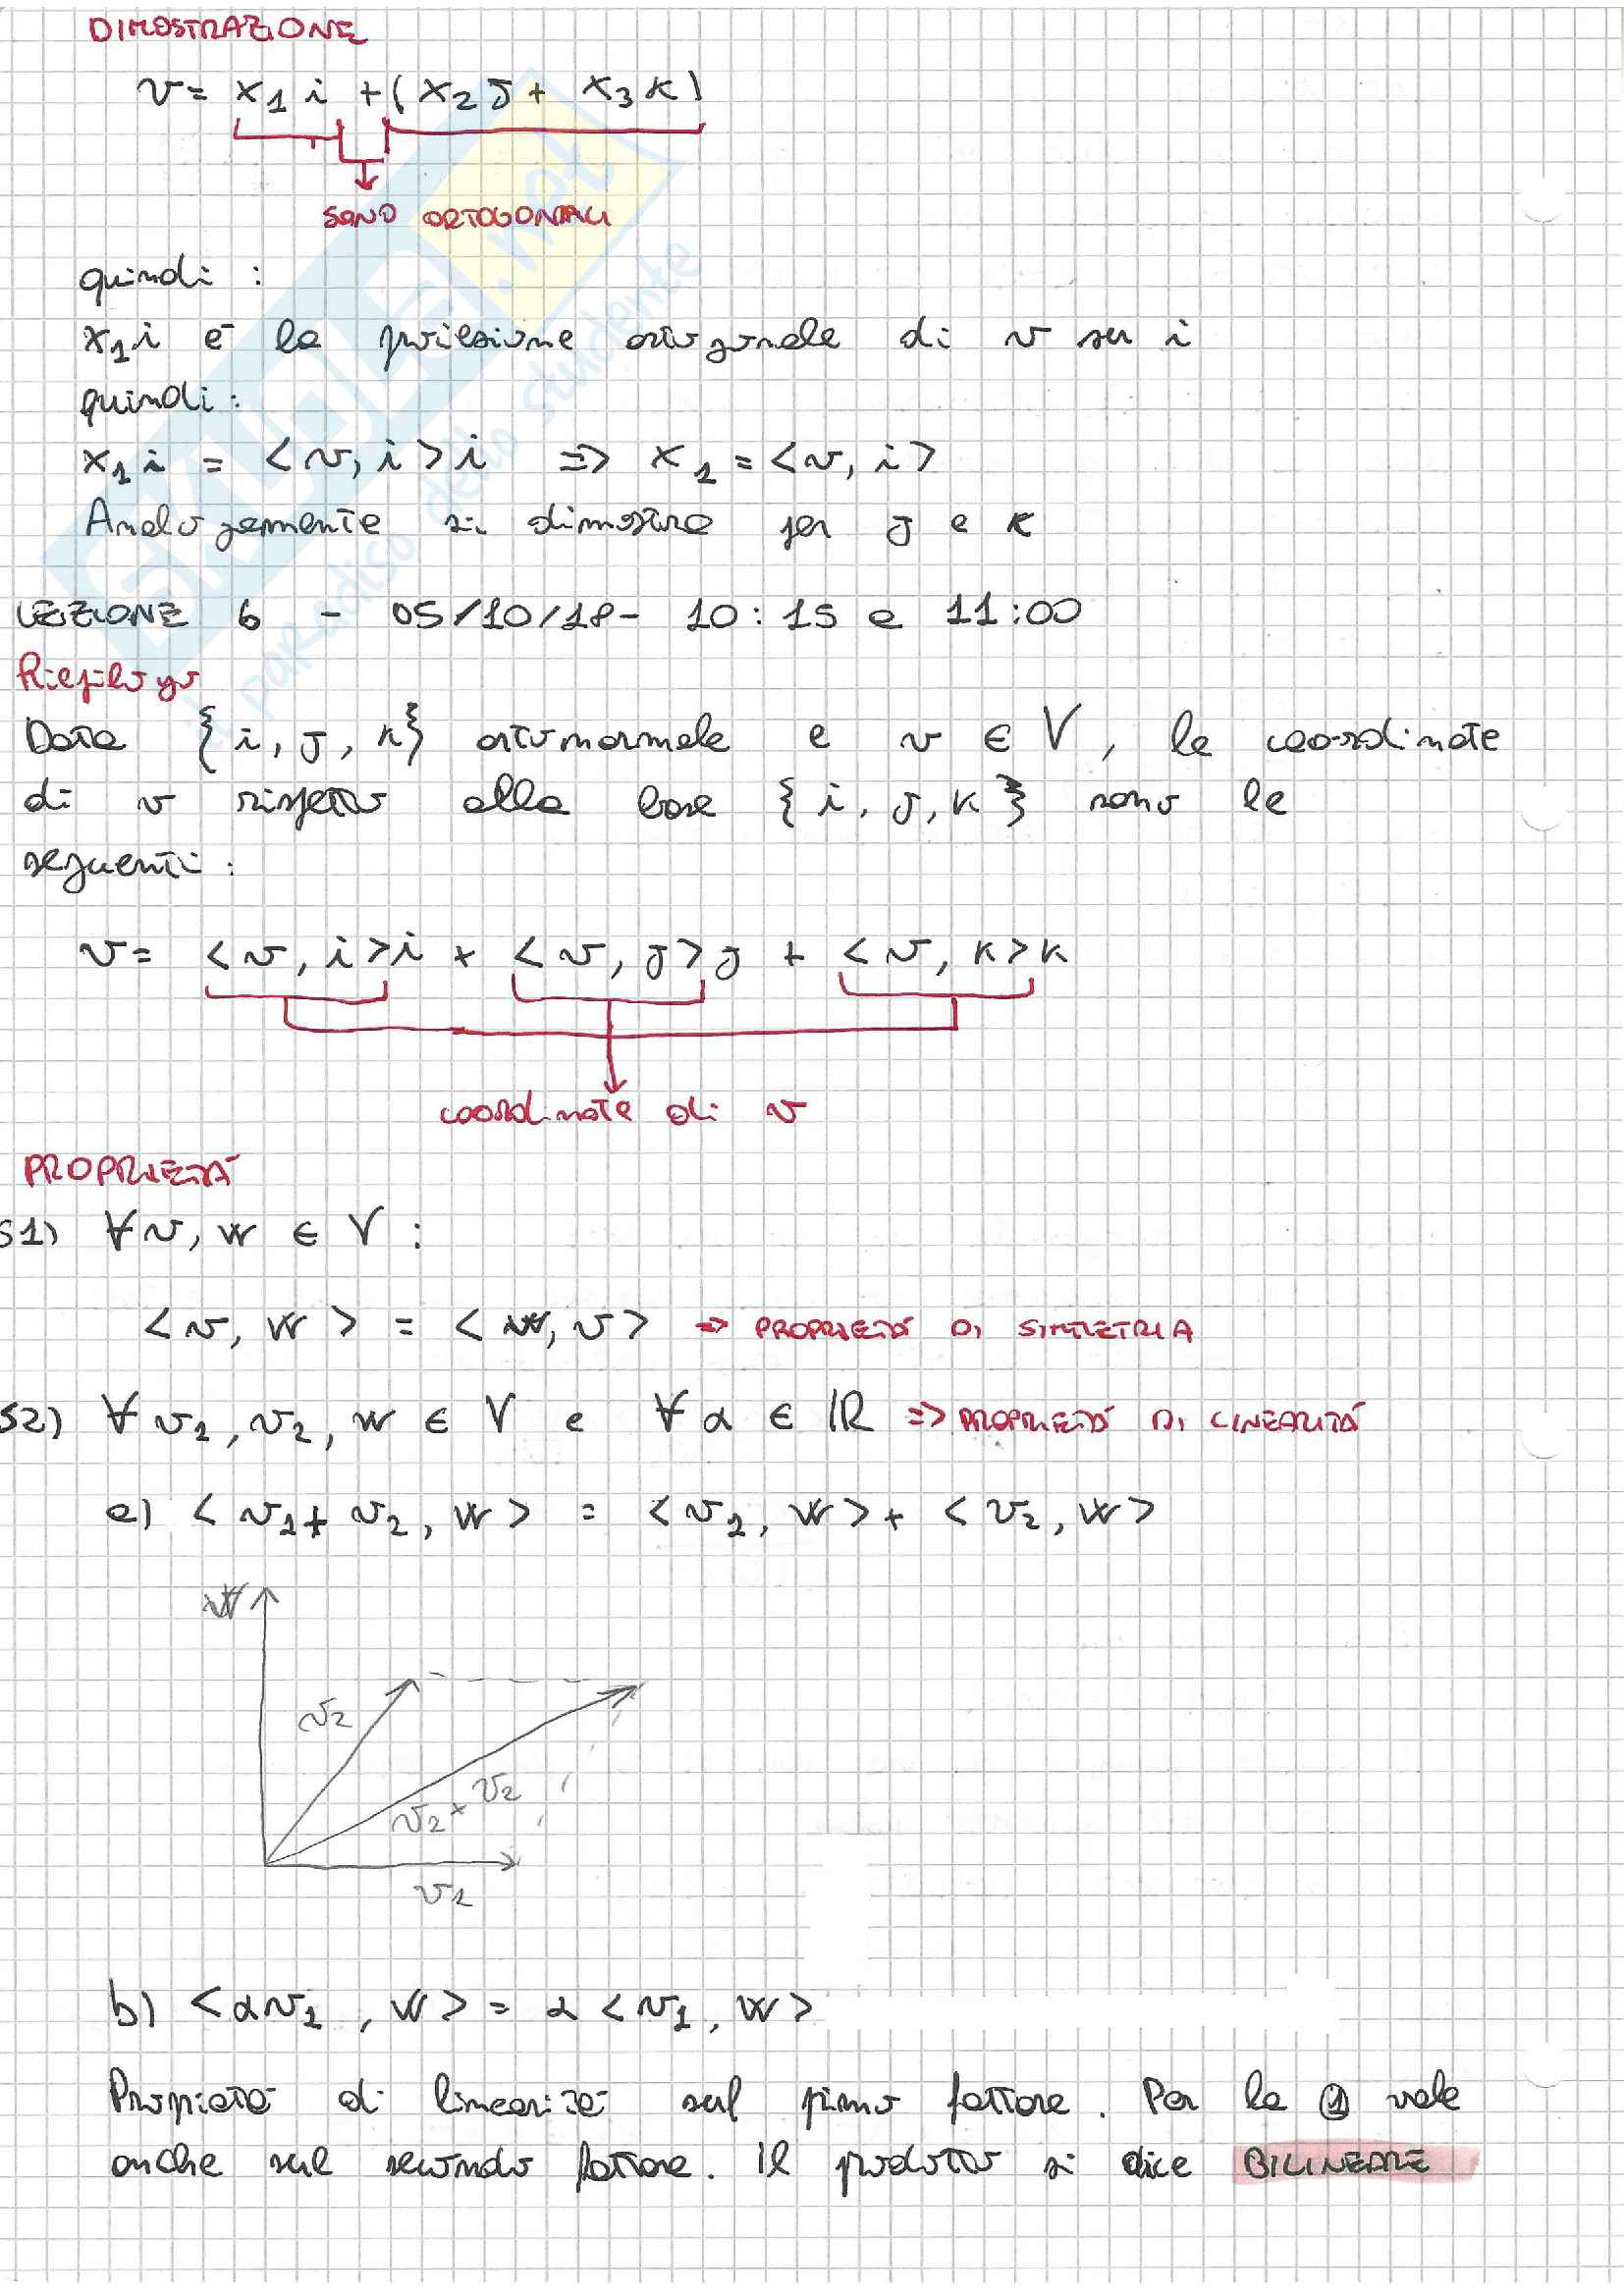 DIMOSTRAZIONE
v = x₁ i + (x₂ j + x₃ k)
SONO ORTOGONALI
quindi :
x₁ i è la proiezione ortogonale di v su i
quindi :
x₁ i = <v, i> i => x₁ = <v, i>
Analogamente si dimostra per j e k
LEZIONE 6 - 05/10/18 - 10:15 e 11:00
Riepilogo
Data {i, j, k} ortonormale e v ∈ V, le coordinate
di v rispetto alla base {i, j, k} sono le
seguenti :
v = <v, i> i + <v, j> j + <v, k> k
coordinate di v
PROPRIETÀ
S1) ∀ v, w ∈ V :
<v, w> = <w, v> => PROPRIETÀ DI SIMMETRIA
S2) ∀ v₁, v₂, w ∈ V e ∀ α ∈ ℝ => PROPRIETÀ DI LINEARITÀ
a) <v₁ + v₂, w> = <v₁, w> + <v₂, w>
w
v₂
v₂ + v₂
v₁
b) <αv₁, w> = α <v₁, w>
Proprietà di linearità sul primo fattore. Per la ① vale
anche sul secondo fattore. Il prodotto si dice BILINEARE
SKUOLA.net
il paradiso dello studente